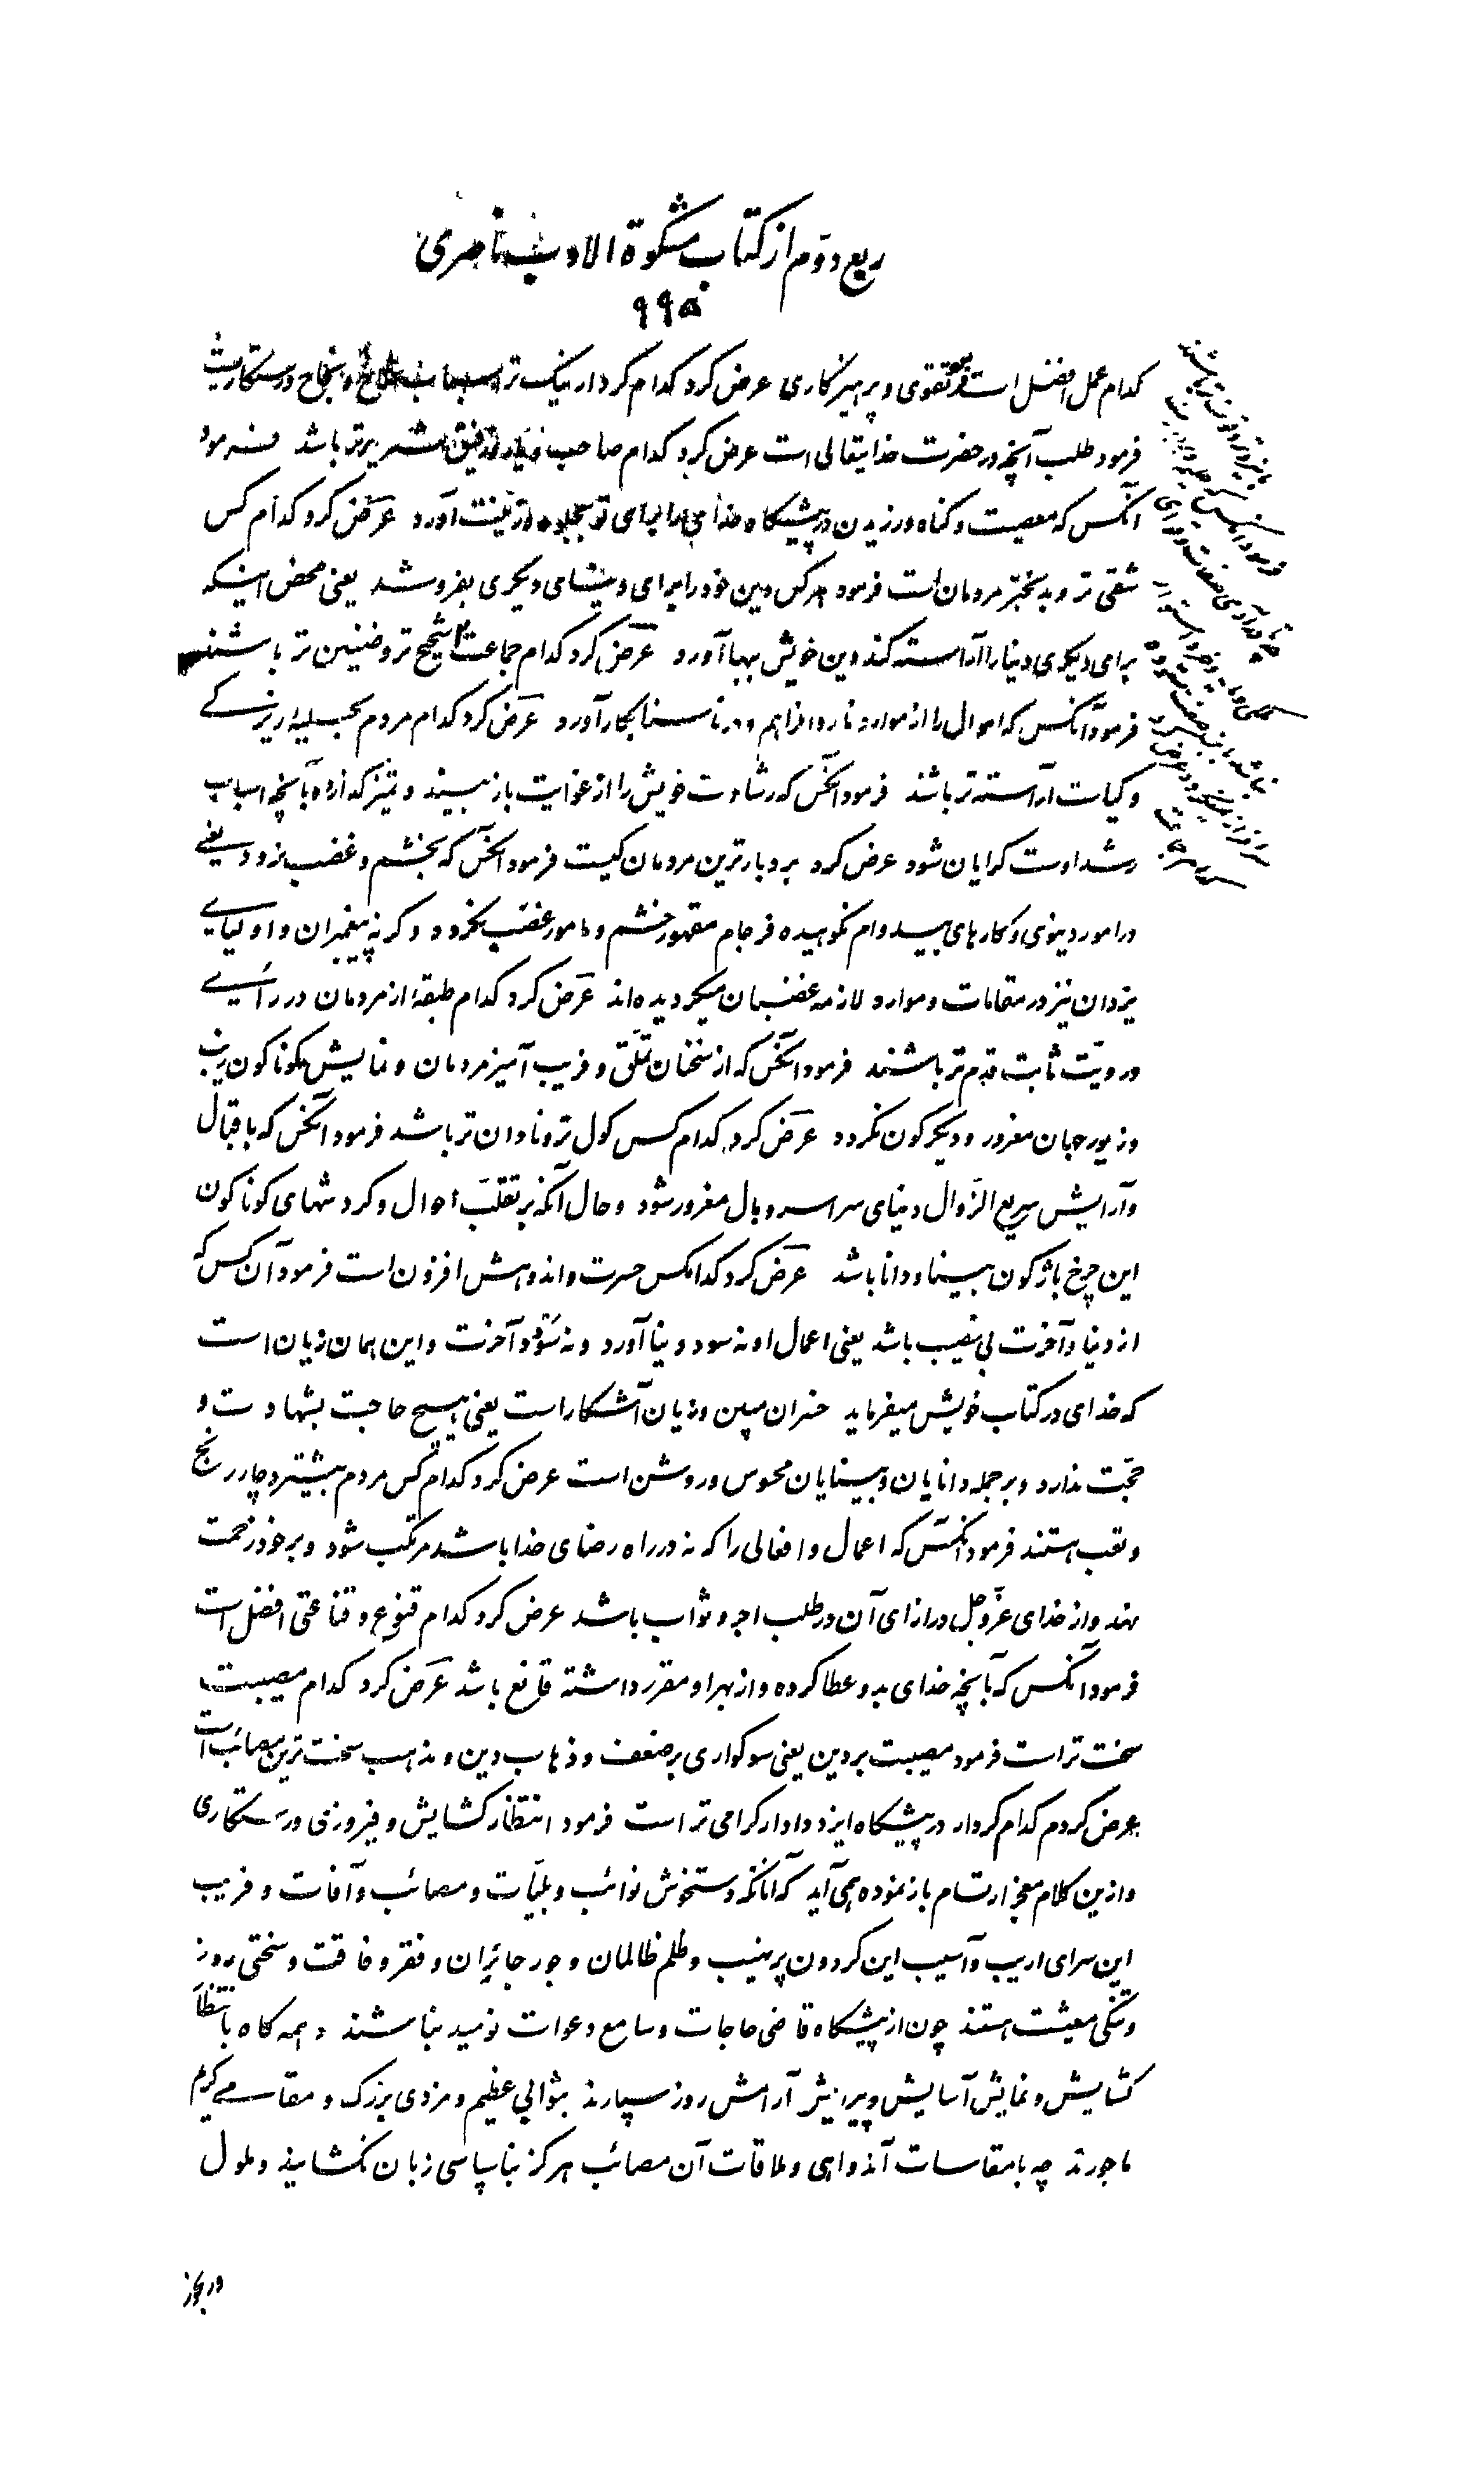 ربع دوّم از کتاب مشکوة الادب ناصری
۹۹۵
کدام عمل افضل است فرمود تقوی و پرهیزکاری عرض کرد کدام کردار نیک تر اسباب و نجاح و رستکاریست
فرمود طلب آنچه در حضرت خدایتعالی است عرض کرد کدام صاحب و رفیق شریرتر باشد فرمود
آنکس که معصیت و کناه ورزیدن در پیشکاه خدای را برای تو بجلوه و زینت آورد عرض کرد کدام کس
شقی تر و بدبختر مردمان است فرمود هر کس دین خود را برای دنیای دیکری بفروشد یعنی محض اینکه
برای دیکری دنیا را آراسته کند دین خویش ببها آورد عرض کرد کدام جماعت شحیح تر و ضنین تر باشند
فرمود آنکس که اموال را از موارد ناروا فراهم و در ناسزا بکار آورد عرض کرد کدام مردم بحلیه زیرکے
و کیاست آراسته تر باشند فرمود آنکس که رشادت خویش را از غوایت باز بیند و تمیز کذارد و بآنچه اسباب
رشد اوست کرایان شود عرض کرد بردبارترین مردمان کیست فرمود آنکس که بخشم و غضب نرود یعنے
در امور دنیوی و کارهای بیدوام نکوهیده فرجام مقهور خشم و مامور غضب نکردد و کرنه پیغمبران و اولیاے
یزدان نیز در مقامات و موارد لازمه غضبان میکردیده‌اند عرض کرد کدام طبقهٔ از مردمان در رأے
و رویّت ثابت قدم تر باشند فرمود آنکس که از سخنان تملّق و فریب آمیز مردمان و نمایش کوناکون زیب
و زیور جهان مغرور و دیکرکون نکردد عرض کرد کدام کس کول تر و نادان تر باشد فرمود آنکس که باقبال
و آرایش سریع الزّوال دنیای سراسر وبال مغرور شود و حال آنکه بر تقلّب احوال و کردشهای کوناکون
این چرخ باژکون بینا و دانا باشد عرض کرد کدامکس حسرت و اندوهش افزون است فرمود آن کس که
از دنیا و آخرت بی نصیب باشد یعنی اعمال او نه سود دنیا آورد و نه سود آخرت و این همان زیان است
که خدای در کتاب خویش میفرماید خسران مبین و زیان آشکار است یعنی هیچ حاجت بشهادت و
حجّت ندارد و بر جمله دانایان و بینایان محسوس و روشن است عرض کرد کدام کس مردم بیشتر دچار رنج
و تعب هستند فرمود آنکس که اعمال و افعالی را که نه در راه رضای خدا باشد مرتکب شود و بر خود زحمت
نهد و از خدای عزّوجل در ازای آن در طلب اجر و ثواب باشد عرض کرد کدام قنوع و قناعتی افضل است
فرمود آنکس که بآنچه خدای بدو عطا کرده و از بهر او مقرر داشته قانع باشد عرض کرد کدام مصیبت
سخت تر است فرمود مصیبت بر دین یعنی سوکواری بر ضعف و ذهاب دین و مذهب سخت ترین مصائب است
عرض کردم کدام کردار در پیشکاه ایزد دادار کرامی تر است فرمود انتظار کشایش و فیروزی و رستکاری
و ازین کلام معجز ارتسام باز نموده همی آید که آنانکه دستخوش نوائب و بلیّات و مصائب و آفات و فریب
این سرای اریب و آسیب این کردون پرنهیب و ظلم ظالمان و جور جائران و فقر و فاقت و سختی روز
و تنکی معیشت هستند چون از پیشکاه قاضی حاجات و سامع دعوات نومید نباشند و همه کاه بانتظار
کشایش و نمایش آسایش و پیرایش آرامش روز سپارند بثوابی عظیم و مزدی بزرک و مقامے کریم
ماجورند چه با مقاسات آن دواهی و ملاقات آن مصائب هرکز بناسپاسی زبان نکشایند و ملول